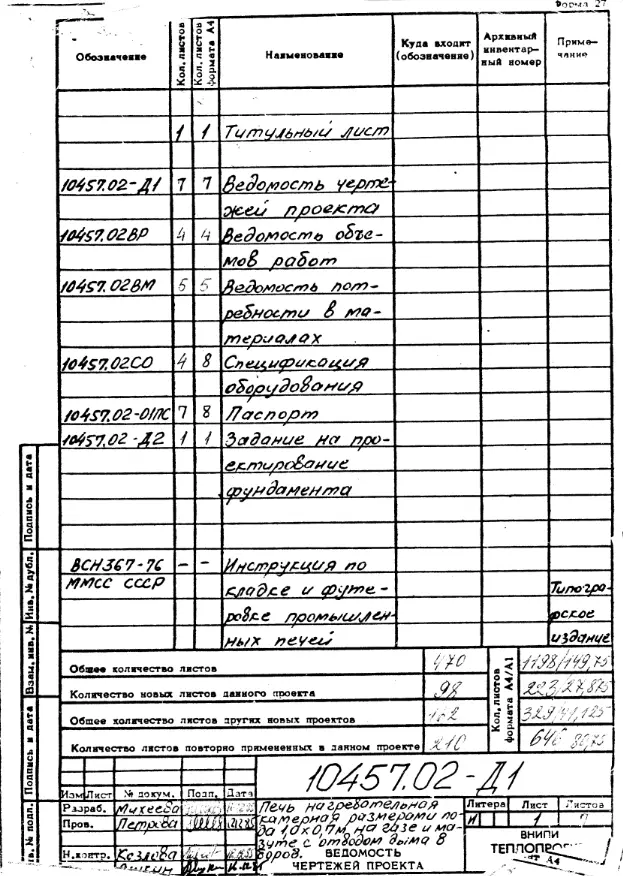 Форма 27
Обозначение Кол. листов Кол. листов формата А4 Наименование Куда входит (обозначение) Архивный инвентарный номер Примечание
1 1 Титульный лист
10457.02-Д1 7 7 Ведомость черте-
жей проекта
10457.02ВР 4 4 Ведомость объе-
мов работ
10457.02ВМ 5 5 Ведомость пот-
ребности в ма-
териалах
10457.02СО 4 8 Спецификация
оборудования
10457.02-01ПС 7 8 Паспорт
10457.02-Д2 1 1 Задание на про-
ектирование
фундамента
ВСН367-76 - - Инструкция по
ММСС СССР кладке и футе- Типогра-
ровке промышлен- фское
ных печей издание
Общее количество листов 470 1198/149,75
Количество новых листов данного проекта 98 223/27,875
Общее количество листов других новых проектов 162 329/41,125
Количество листов повторно примененных в данном проекте 210 646 80,75
Кол. листов формата А4/А1
Подпись и дата
Инв. № дубл.
Взам. инв. №
Подпись и дата
Инв. № подл.
10457.02-Д1
Изм Лист № докум. Подп. Дата
Разраб. Михеева
Пров. Петрова
Н.контр. Козлова
Печь нагревательная
камерная размерами по-
да 1,0х0,7м, на газе и ма-
зуте с отводом дыма в
боров. ВЕДОМОСТЬ
ЧЕРТЕЖЕЙ ПРОЕКТА
Литера Лист Листов
И 1 7
ВНИПИ